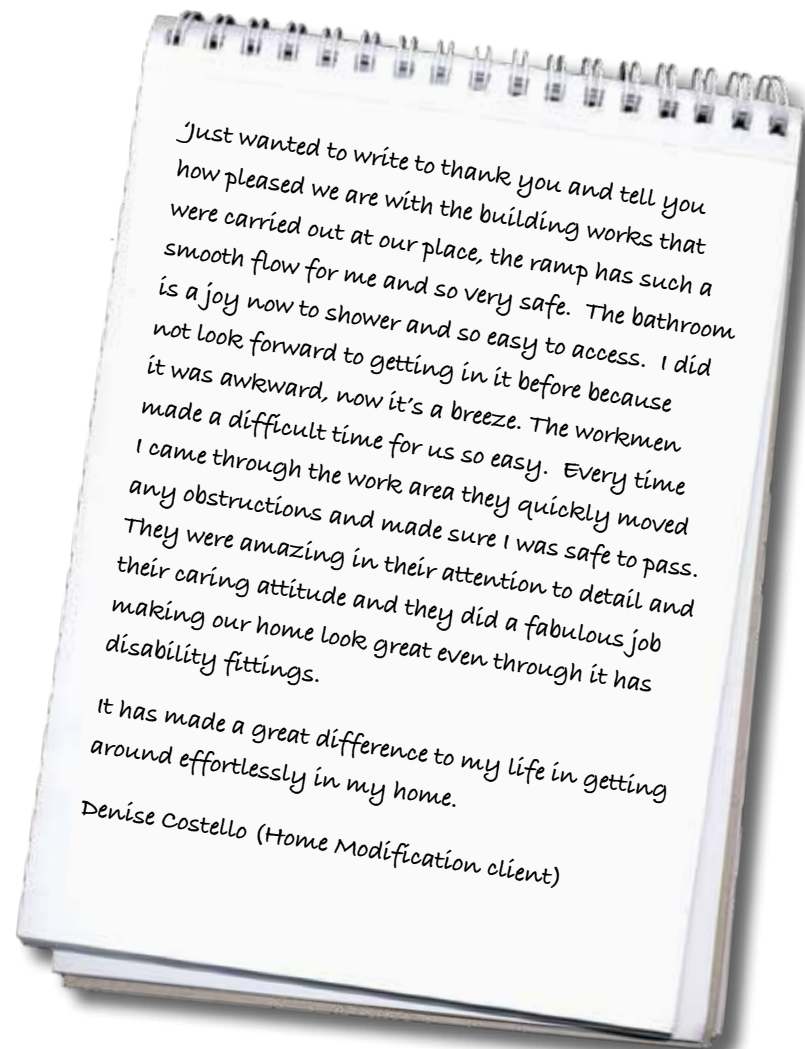 ‘Just wanted to write to thank you and tell you
how pleased we are with the building works that
were carried out at our place, the ramp has such a
smooth flow for me and so very safe.  The bathroom
is a joy now to shower and so easy to access.  I did
not look forward to getting in it before because
it was awkward, now it’s a breeze. The workmen
made a difficult time for us so easy.  Every time
I came through the work area they quickly moved
any obstructions and made sure I was safe to pass.
They were amazing in their attention to detail and
their caring attitude and they did a fabulous job
making our home look great even through it has
disability fittings.
It has made a great difference to my life in getting
around effortlessly in my home.
Denise Costello (Home Modification client)